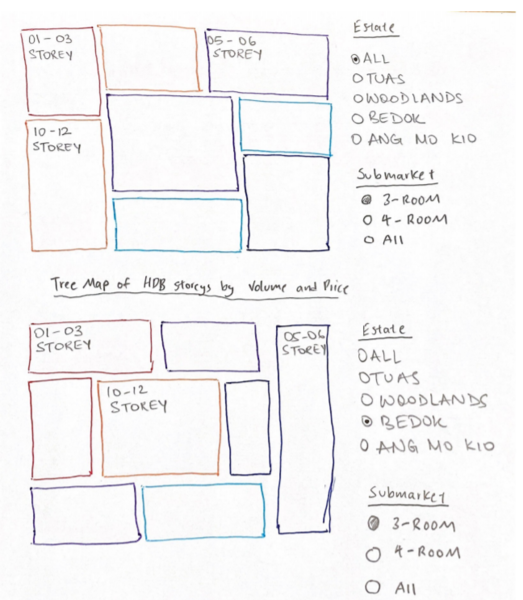 01-03
STOREY
05-06
STOREY
10-12
STOREY
Estate
ALL
TUAS
WOODLANDS
BEDOK
ANG MO KIO
Submarket
3-ROOM
4-ROOM
All
Tree Map of HDB Storeys by Volume and Price
01-03
STOREY
05-06
STOREY
10-12
STOREY
Estate
ALL
TUAS
WOODLANDS
BEDOK
ANG MO KIO
Submarket
3-ROOM
4-ROOM
All